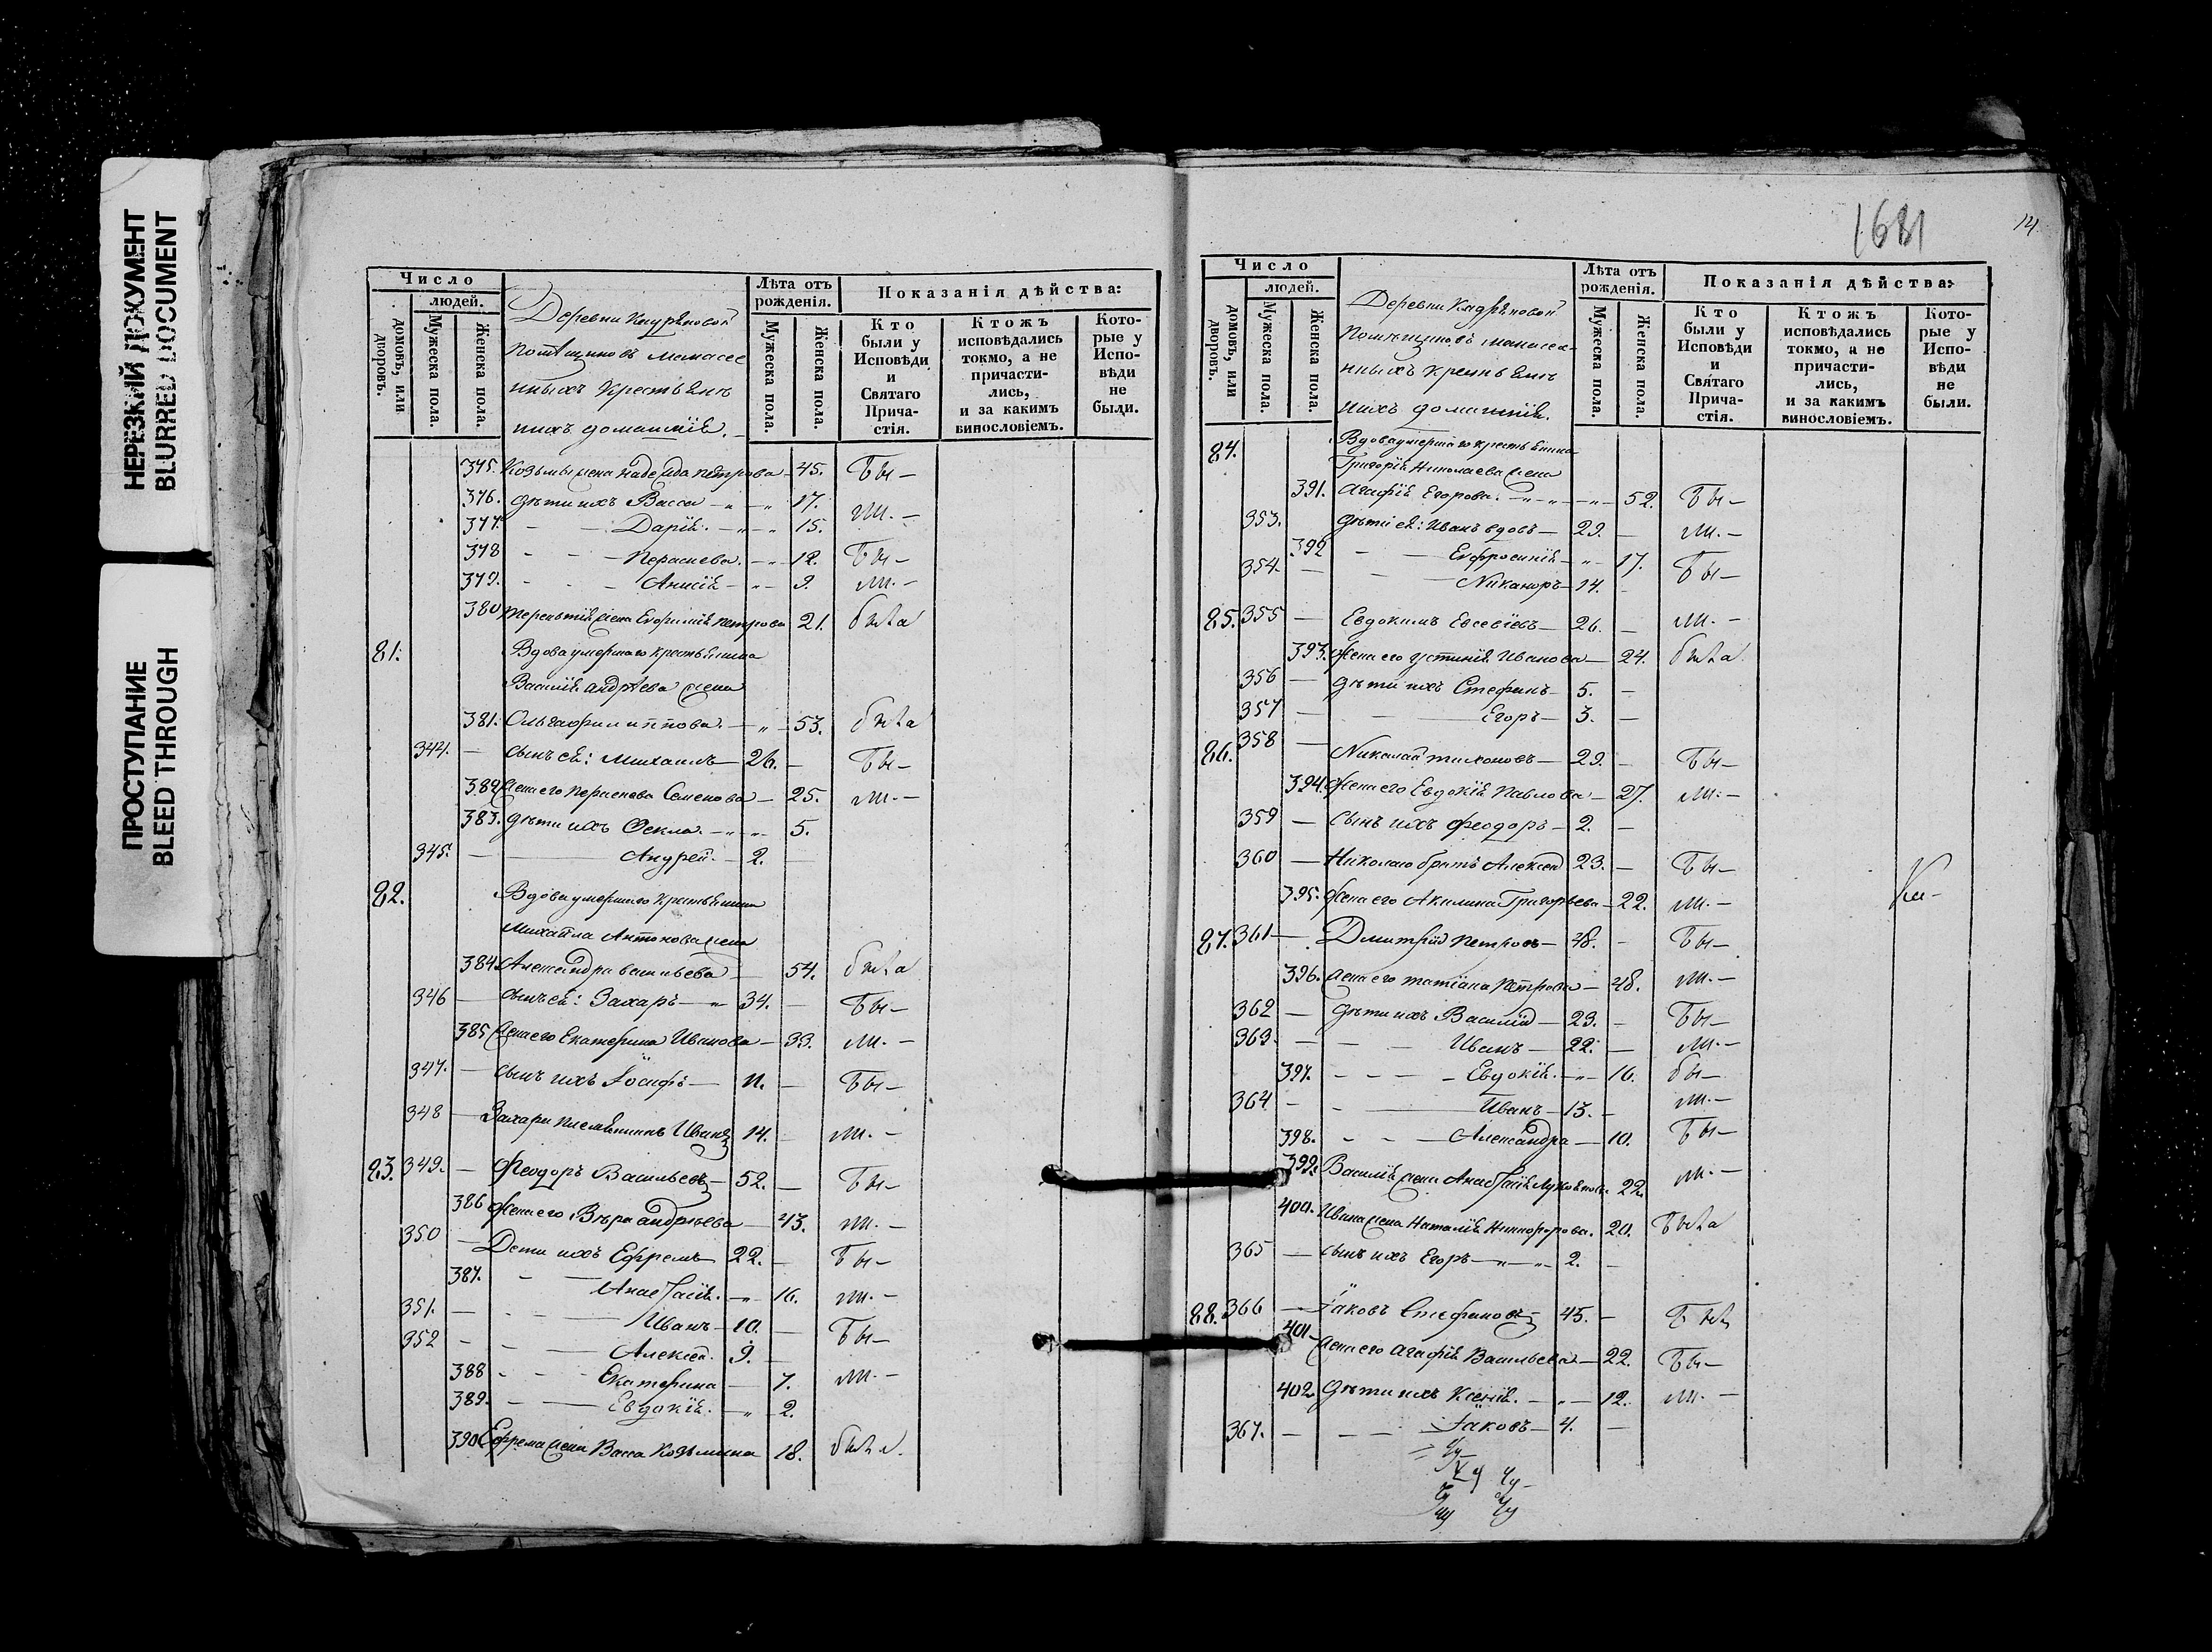 НЕРЕЗКИЙ ДОКУМЕНТ
BLURRED DOCUMENT
ПРОСТУПАНИЕ
BLEED THROUGH
Число
людей.
домовъ, или дворовъ.
Мужеска пола.
Женска пола.
Деревни
нныхъ Крестьянъ
ихъ домашнія.
Лѣта отъ рожденія.
Мужеска пола.
Женска пола.
Показанія дѣйства:
Кто были у Исповѣди и Святаго Прича-стія.
Ктожъ исповѣдались токмо, а не причасти-лись, и за какимъ винословіемъ.
Кото-рые у Испо-вѣди не были.
375. Козьмы жена Надежда Петрова — 45. Бы—
376. дѣти ихъ Васса — " — " 17.
377. — — Дарія. — " — 15. ли. —
378 — — — Параскева. — " — 12. Бы—
379. — — — Анисія — " — 9. ли. —
380 Терентія жена Евфимія Петрова 21. была
81. Вдова умершаго крестьянина
Василія Андрѣева жена
381. Ольга Филиппова. — " — 53. была
344. — сынъ ея: Михаилъ — 26. — Бы—
382 Жена его Параскева Семенова — 25. ли. —
383. дѣти ихъ Фекла. — " — " 5.
345. — — Андрей. — 2. —
82. Вдова умершаго крестьянина
Михаила Антонова жена
384. Александра Васильева — 54. была
346 — сынъ ея: Захаръ — " 34. — Бы—
385 Жена его Екатерина Иванова — 33. ли. —
347. — сынъ ихъ Іосифъ — 11. — Бы—
348 — Захара племянникъ Иванъ 14. — ли. —
83. 349. — Феодоръ Васильевъ — 52. — Бы—
386 Жена его Вѣра Андрѣева — 43. ли. —
350 — Дети ихъ Ефремъ 22. — Бы—
387. — — Анастасія. — " 16. ли. —
351. — — — Иванъ — 10. — Бы—
352 — — — Алексѣй. 9. —
388 — — — Екатерина — 7. ли. —
389. — — Евдокія. — " — 2.
390 Ефрема жена Васса Козьмина 18. была.
1681
14
Число
людей.
домовъ, или дворовъ.
Мужеска пола.
Женска пола.
Деревни
нныхъ крестьянъ
ихъ домашнія.
Лѣта отъ рожденія.
Мужеска пола.
Женска пола.
Показанія дѣйства:
Кто были у Исповѣди и Святаго Прича-стія.
Ктожъ исповѣдались токмо, а не причасти-лись, и за какимъ винословіемъ.
Кото-рые у Испо-вѣди не были.
84. Вдова умершаго крестьянина
Григорія Николаева жена
391. Агафія Егорова. — " — " — " — 52. Бы—
353. дѣти ея: Иванъ вдовъ — 29. — ли. —
392 — — Евфросинія — " — 17. Бы—
354. — — — Никаноръ — 14. —
85. 355 — Евдокимъ Евсевіевъ — 26. — ли. —
393. Жена его Устинія Иванова — 24. была.
356 — дѣти ихъ Стефанъ — 5. —
357 — — Егоръ — 3. —
86. 358 — Николай Тихоновъ — 29. — Бы—
394. Жена его Евдокія Павлова — 27. ли. —
359 — сынъ ихъ Феодоръ — 2. —
360 — Николаю братъ Алексѣй 23. — Бы—
395. Жена его Акилина Григорьева — 22. ли. —
87. 361 — Дмитрій Петровъ — 48. — Бы—
396. Жена его Татіана Петрова — 48. ли. —
362 — дѣти ихъ Василій — 23. — Бы—
363. — — — Иванъ — 22. — ли. —
397. — — — — Евдокія. — " — 16. бы—
364 — — — Иванъ — 13. — ли. —
398. — — — Александра — 10. Бы—
399. Василія жена Анастасія 22. ли. —
400. Ивана жена Наталія Никифорова. 20. была
365 — сынъ ихъ Егоръ — " — " 2. —
88. 366 — Іаковъ Стефановъ 45. — Былъ
401 — Жена его Агафія Васильева — 22. Бы—
402 дѣти ихъ Ксенія. — " — 12. ли. —
367. — — — Іаковъ — 4. —